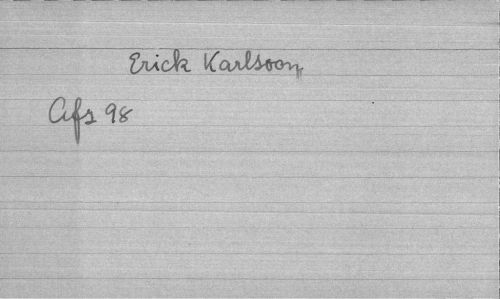 Erick Karlsoon
Afs 98